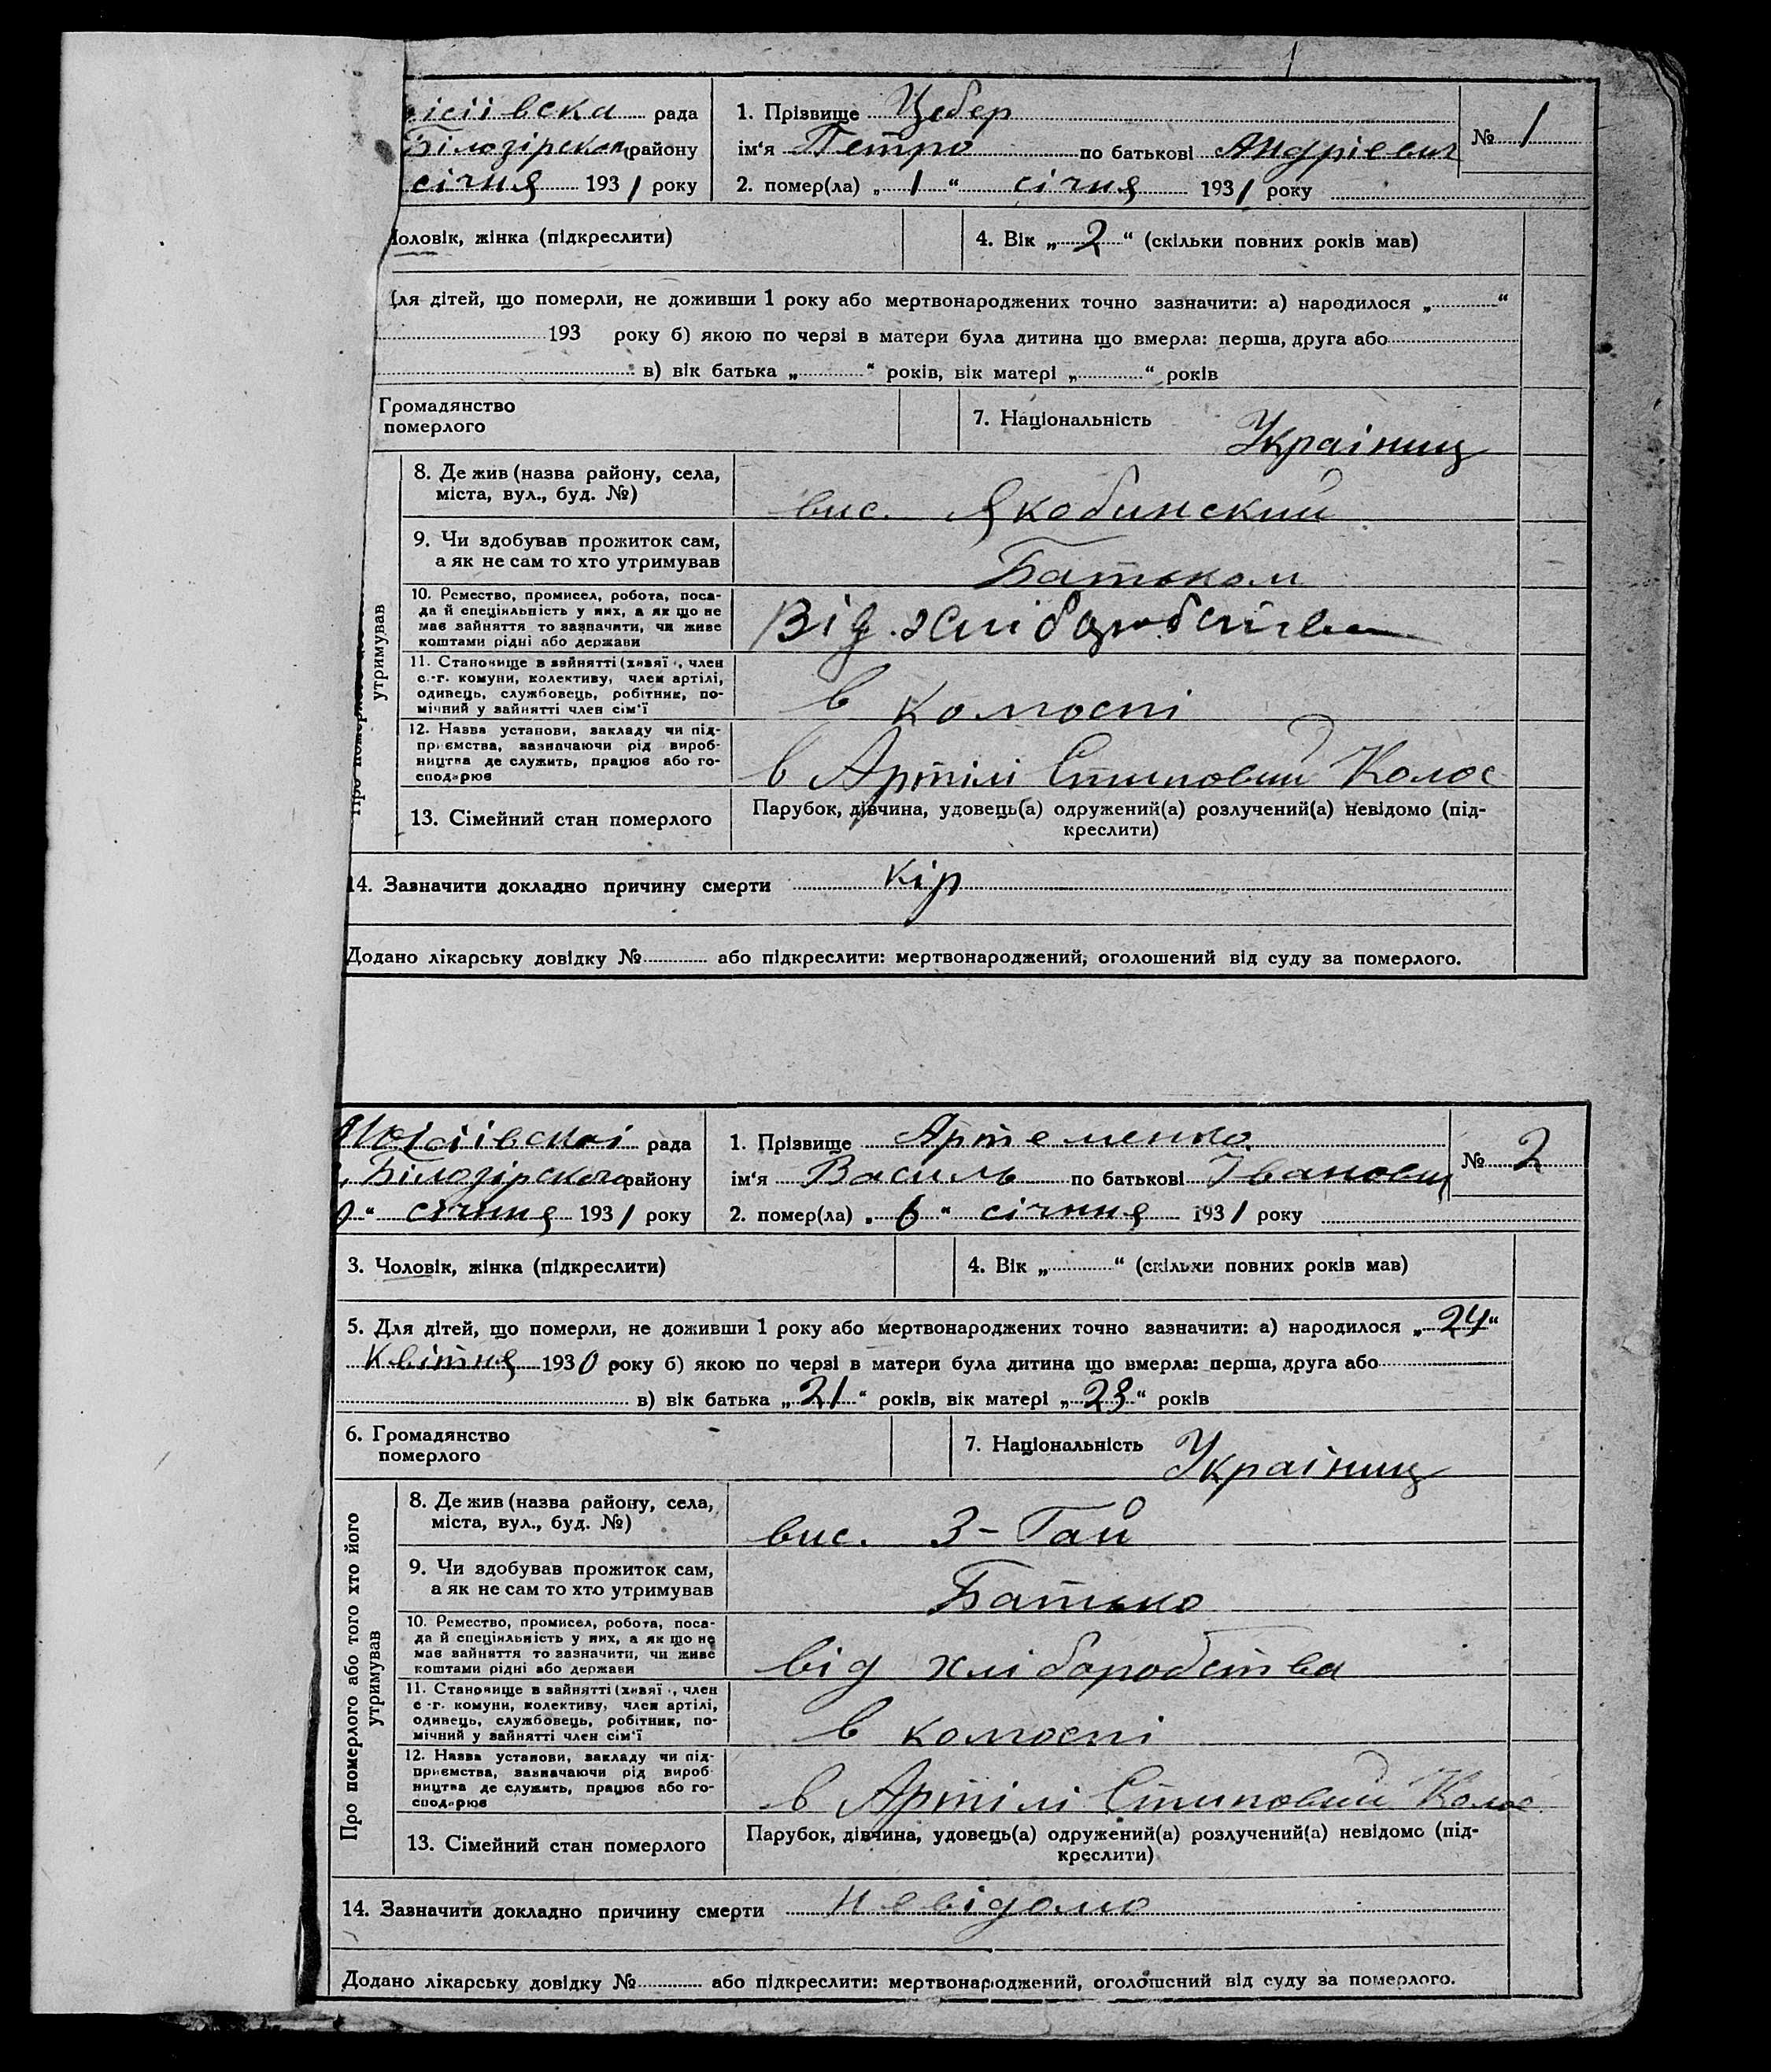 1
ісіівска рада
Білозірском району
січня 1931 року
1. Прізвище Цебер
ім'я Петро по батькові Андрієвич
2. помер(ла) „ 1 “ січня 1931 року
№ 1
Чоловік, жінка (підкреслити)
4. Вік „ 2 “ (скільки повних років мав)
Для дітей, що померли, не доживши 1 року або мертвонароджених точно зазначити: а) народилося „ “
193 року б) якою по черзі в матери була дитина що вмерла: перша, друга або
в) вік батька „ “ років, вік матері „ “ років
Громадянство
померлого
7. Національність Україниц
утримував
8. Де жив (назва району, села,
міста, вул., буд. №)
вис. Якобинский
9. Чи здобував прожиток сам,
а як не сам то хто утримував
Батьком
10. Ремество, промисел, робота, поса-
да й спеціяльність у них, а як що не
має зайняття то зазначити, чи живе
коштами рідні або держави
Від хліборобства
11. Становище в зайнятті (хазяї , член
с.-г. комуни, колективу, член артілі,
одинець, службовець, робітник, по-
мічний у зайнятті член сім'ї
в колгоспі
12. Назва установи, закладу чи під-
приємства, зазначаючи рід вироб-
ництва де служить, працює або го-
сподарює
в Артілі Стиповий Колос
13. Сімейний стан померлого
Парубок, дівчина, удовець(а) одружений(а) розлучений(а) невідомо (під-
креслити)
14. Зазначити докладно причину смерти кір
Додано лікарську довідку № або підкреслити: мертвонароджений, оголошений від суду за померлого.
Мойсіівскоі рада
Білозірского району
0 “ січння 1931 року
1. Прізвище Артеменко
ім'я Василь по батькові Іванович
2. помер(ла) „ 6 “ січння 1931 року
№ 2
3. Чоловік, жінка (підкреслити)
4. Вік „ “ (скільки повних років мав)
5. Для дітей, що померли, не доживши 1 року або мертвонароджених точно зазначити: а) народилося „ 24 “
Квітня 1930 року б) якою по черзі в матери була дитина що вмерла: перша, друга або
в) вік батька „ 21 “ років, вік матері „ 23 “ років
6. Громадянство
померлого
7. Національність Україниц
Про померлого або того хто його
утримував
8. Де жив (назва району, села,
міста, вул., буд. №)
вис. 3-Гай
9. Чи здобував прожиток сам,
а як не сам то хто утримував
Батько
10. Ремество, промисел, робота, поса-
да й спеціяльність у них, а як що не
має зайняття то зазначити, чи живе
коштами рідні або держави
від хліборобства
11. Становище в зайнятті (хазяї , член
с.-г. комуни, колективу, член артілі,
одинець, службовець, робітник, по-
мічний у зайнятті член сім'ї
в колгоспі
12. Назва установи, закладу чи під-
приємства, зазначаючи рід вироб-
ництва де служить, працює або го-
сподарює
в Артілі Стиповий Колос
13. Сімейний стан померлого
Парубок, дівчина, удовець(а) одружений(а) розлучений(а) невідомо (під-
креслити)
14. Зазначити докладно причину смерти невідомо
Додано лікарську довідку № або підкреслити: мертвонароджений, оголошений від суду за померлого.